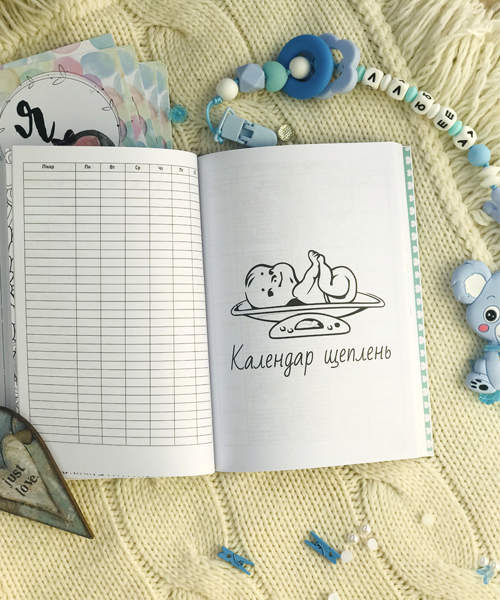 Я
Лікар Пн Вт Ср Чт Пт
Календар щеплень
just
love.